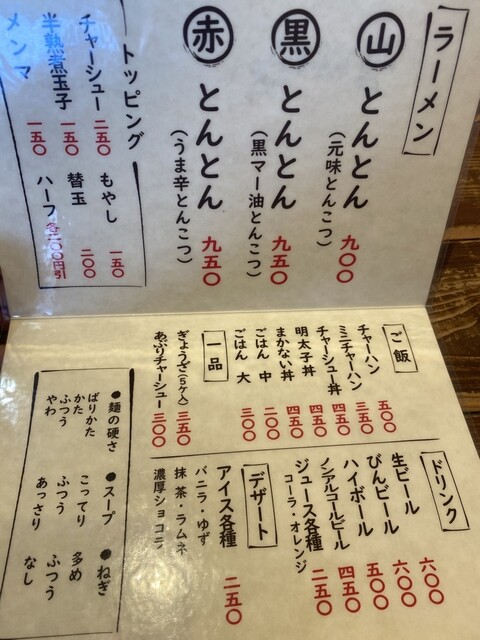 ラーメン
山 とんとん
(元味とんこつ) 九〇〇
黒 とんとん
(黒マー油とんこつ) 九五〇
赤 とんとん
(うま辛とんこつ) 九五〇
トッピング
チャーシュー 二五〇
半熟煮玉子 一五〇
メンマ 一五〇
もやし 一五〇
替玉 二〇〇
ハーフ 各二〇〇円引
ご飯
チャーハン 五〇〇
ミニチャーハン 三五〇
チャーシュー丼 四五〇
明太子丼 四五〇
まかない丼 四五〇
ごはん 中 二〇〇
ごはん 大 三〇〇
一品
ぎょうざ(5ケ入) 三五〇
あぶりチャーシュー 三〇〇
ドリンク
生ビール 六〇〇
びんビール 六〇〇
ハイボール 五〇〇
ノンアルコールビール 四五〇
ジュース各種 二五〇
コーラ・オレンジ
デザート
アイス各種 二五〇
バニラ・ゆず
抹茶・ラムネ
濃厚ショコラ
●麺の硬さ
ばりかた
かた
ふつう
やわ
●スープ
こってり
ふつう
あっさり
●ねぎ
多め
ふつう
なし